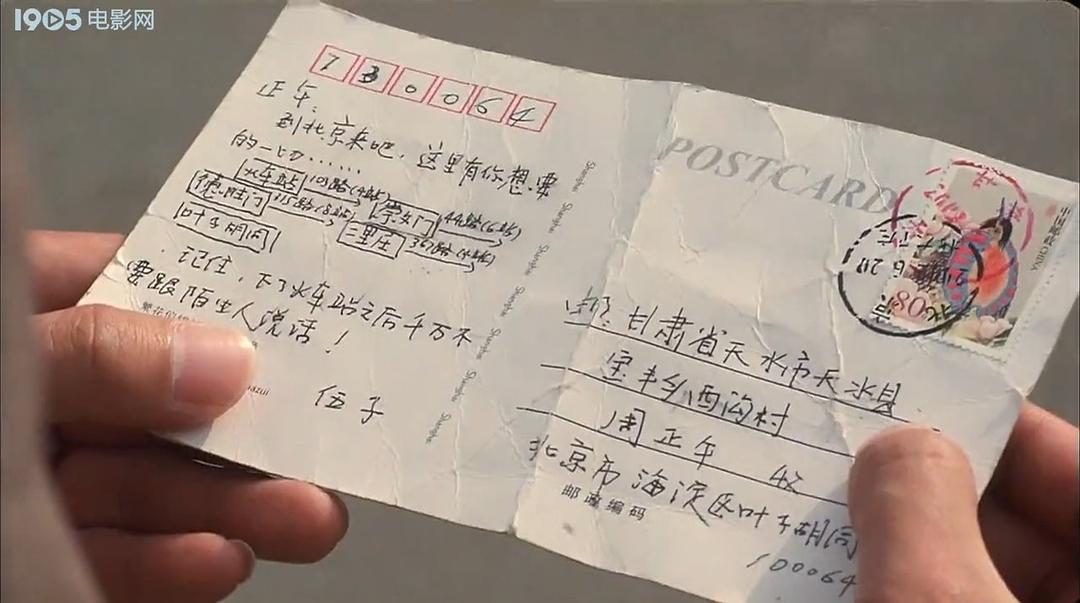 1905电影网
730064
正午:
到北京来吧，这里有你想要
的一切……
火车站 109路(4站) 崇文门 44路(6站)
德胜门 315路(8站) 二里庄 367路(4站)
叶子胡同
记住，下了火车站之后千万不
要跟陌生人说话！
伍子
Shanghai Shanghai Shanghai Shanghai Shanghai
POSTCARD
中国邮政 CHINA
80
北京
邮: 甘肃省天水市天水县
宝丰乡西沟村
周正午 收
北京市海淀区叶子胡同
邮政编码
100064